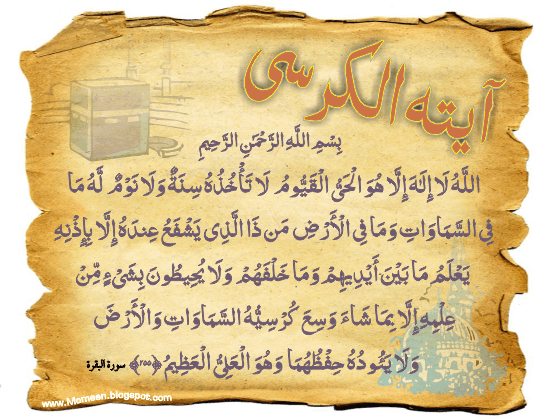 آیته الکرسی
بِسْمِ اللَّهِ الرَّحْمَنِ الرَّحِيمِ
اللَّهُ لَا إِلَهَ إِلَّا هُوَ الْحَيُّ الْقَيُّومُ لَا تَأْخُذُهُ سِنَةٌ وَلَا نَوْمٌ لَّهُ مَا
فِي السَّمَاوَاتِ وَمَا فِي الْأَرْضِ مَن ذَا الَّذِي يَشْفَعُ عِندَهُ إِلَّا بِإِذْنِهِ
يَعْلَمُ مَا بَيْنَ أَيْدِيهِمْ وَمَا خَلْفَهُمْ وَلَا يُحِيطُونَ بِشَيْءٍ مِّنْ
عِلْمِهِ إِلَّا بِمَا شَاءَ وَسِعَ كُرْسِيُّهُ السَّمَاوَاتِ وَالْأَرْضَ
وَلَا يَئُودُهُ حِفْظُهُمَا وَهُوَ الْعَلِيُّ الْعَظِيمُ ﴿٢٥٥﴾ سورة البقرة
www.Momeen.blogspot.com